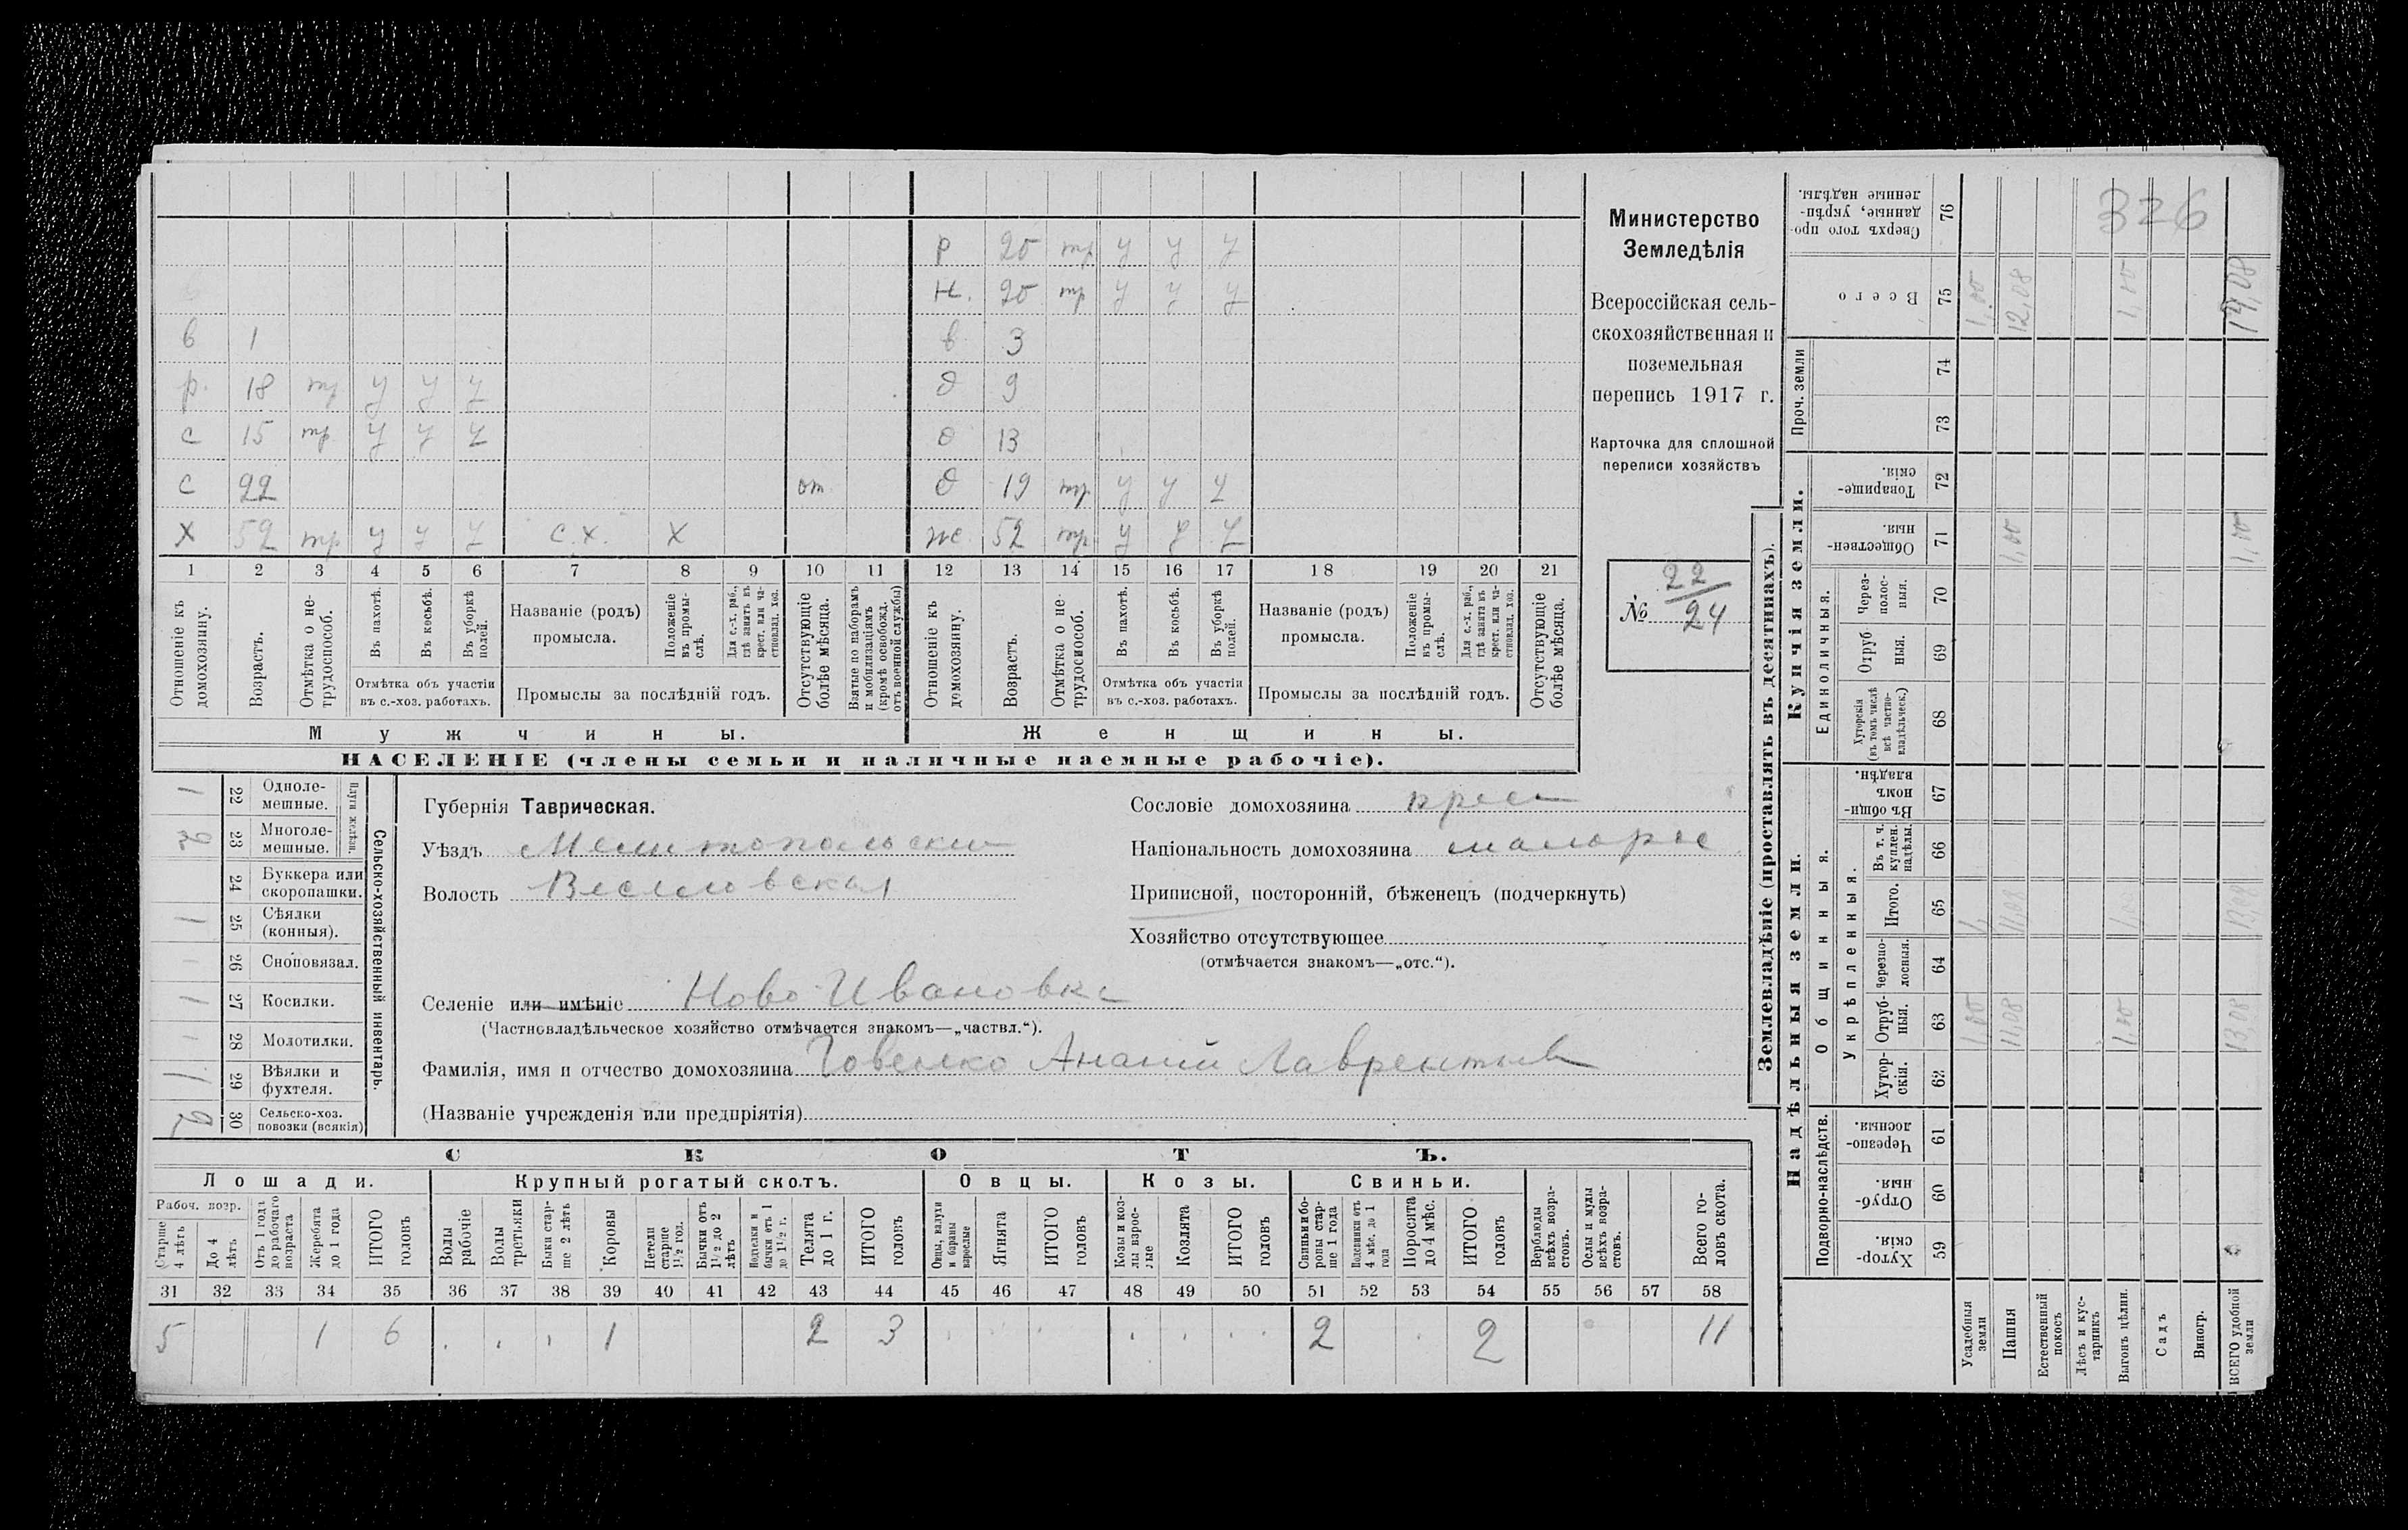 р 20 тр у у у
н. 20 тр у у у
в 1 в 3
р. 18 тр у у у д 9
с 15 тр у у у д 13
с 22 от. д 19 тр у у у
х 52 тр у у у с.х. х же 52 тр у у у
1 2 3 4 5 6 7 8 9 10 11 12 13 14 15 16 17 18 19 20 21
Отношеніе къ домохозяину.
Возрастъ.
Отмѣтка о не-
трудоспособ.
Въ пахотѣ.
Въ косьбѣ.
Въ уборкѣ
полей.
Отмѣтка объ участіи
въ с.-хоз. работахъ.
Названіе (родъ)
промысла.
Положеніе
въ промы-
слѣ.
Для с.-х. раб.,
гдѣ занятъ въ
крест. или ча-
стновлад. хоз.
Промыслы за послѣдній годъ.
Отсутствующіе
болѣе мѣсяца.
Взятые по наборамъ
и мобилизаціямъ
(кромѣ освобожд.
отъ военной службы)
Отношеніе къ
домохозяину.
Возрастъ.
Отмѣтка о не-
трудоспособ.
Въ пахотѣ.
Въ косьбѣ.
Въ уборкѣ
полей.
Отмѣтка объ участіи
въ с.-хоз. работахъ.
Названіе (родъ)
промысла.
Положеніе
въ промы-
слѣ.
Для с.-х. раб.,
гдѣ занята въ
крест. или ча-
стновлад. хоз.
Промыслы за послѣдній годъ.
Отсутствующіе
болѣе мѣсяца.
Мужчины. Женщины.
НАСЕЛЕНІЕ (члены семьи и наличные наемные рабочіе).
Министерство
Земледѣлія
Всероссійская сель-
скохозяйственная и
поземельная
перепись 1917 г.
Карточка для сплошной
переписи хозяйствъ
№ 22
24
Плуги желѣзн.
1 22 Одноле-
мешные.
2 23 Многоле-
мешные.
24 Буккера или
скоропашки.
1 25 Сѣялки
(конныя).
26 Сноповязал.
1 27 Косилки.
28 Молотилки.
1 29 Вѣялки и
фухтеля.
2 30 Сельско-хоз.
повозки (всякія)
Сельско-хозяйственный инвентарь.
Губернія Таврическая.
Уѣздъ Мелитопольски
Волость Веселовская
Сословіе домохозяина крес
Національность домохозяина малорос
Приписной, посторонній, бѣженецъ (подчеркнуть)
Хозяйство отсутствующее
(отмѣчается знакомъ—„отс.“).
Селеніе или имѣніе Ново Ивановка
(Частновладѣльческое хозяйство отмѣчается знакомъ—„частвл.“).
Фамилія, имя и отчество домохозяина Ананій Лаврентьев
(Названіе учрежденія или предпріятія)
СКОТЪ.
Лошади. Крупный рогатый скотъ. Овцы. Козы. Свиньи.
Рабоч. возр.
Старше
4 лѣтъ
До 4
лѣтъ
Отъ 1 года
до рабочаго
возраста
Жеребята
до 1 года
ИТОГО
головъ
Волы
рабочіе
Волы
третьяки
Быки стар-
ше 2 лѣтъ
Коровы
Нетели
старше
1½ год.
Бычки отъ
1½ до 2
лѣтъ
Подтелки и
бычки отъ 1
до 1½ г.
Телята
до 1 г.
ИТОГО
головъ
Овцы, валухи
и бараны
взрослые
Ягнята
ИТОГО
головъ
Козы и коз-
лы взрос-
лые
Козлята
ИТОГО
головъ
Свиньи и бо-
ровы стар-
ше 1 года
Подсвинки отъ
4 мѣс. до 1
года
Поросята
до 4 мѣс.
ИТОГО
головъ
Верблюды
всѣхъ возра-
стовъ.
Ослы и мулы
всѣхъ возра-
стовъ.
Всего го-
ловъ скота.
31 32 33 34 35 36 37 38 39 40 41 42 43 44 45 46 47 48 49 50 51 52 53 54 55 56 57 58
5 1 6 1 2 3 2 2 11
Землевладѣніе (проставлять въ десятинахъ).
Надѣльныя земли. Купчія земли. Проч. земли
Подворно-наслѣдств. Общинныя. Укрѣпленныя. Единоличныя.
Хутор-
скія. 59
Отруб-
ныя. 60
Черезпо-
лосныя. 61
Хутор-
скія. 62
Отруб-
ныя. 63
Черезпо-
лосныя. 64
Итого. 65
Въ т. ч.
куплен.
надѣлы. 66
Въ общи-
номъ
владѣн. 67
Хуторскія
(въ томъ числѣ
всѣ частно-
владѣльческ.) 68
Отруб
ныя. 69
Через-
полос-
ныя. 70
Обществен-
ныя. 71
Товарище-
скія. 72
73
74
Всего 75
Сверхъ того про-
данные, укрѣп-
ленные надѣлы. 76
326
Усадебныя
земли 1,00 1, 1,00
Пашня 11,08 11,08 1,00 12,08
Естественный
покосъ
Лѣсъ и кус-
тарникъ
Выгонъ цѣлин. 1,00 1,00 1,00
Садъ
Виногр.
ВСЕГО удобной
земли 13,08 13,08 1,00 14,08